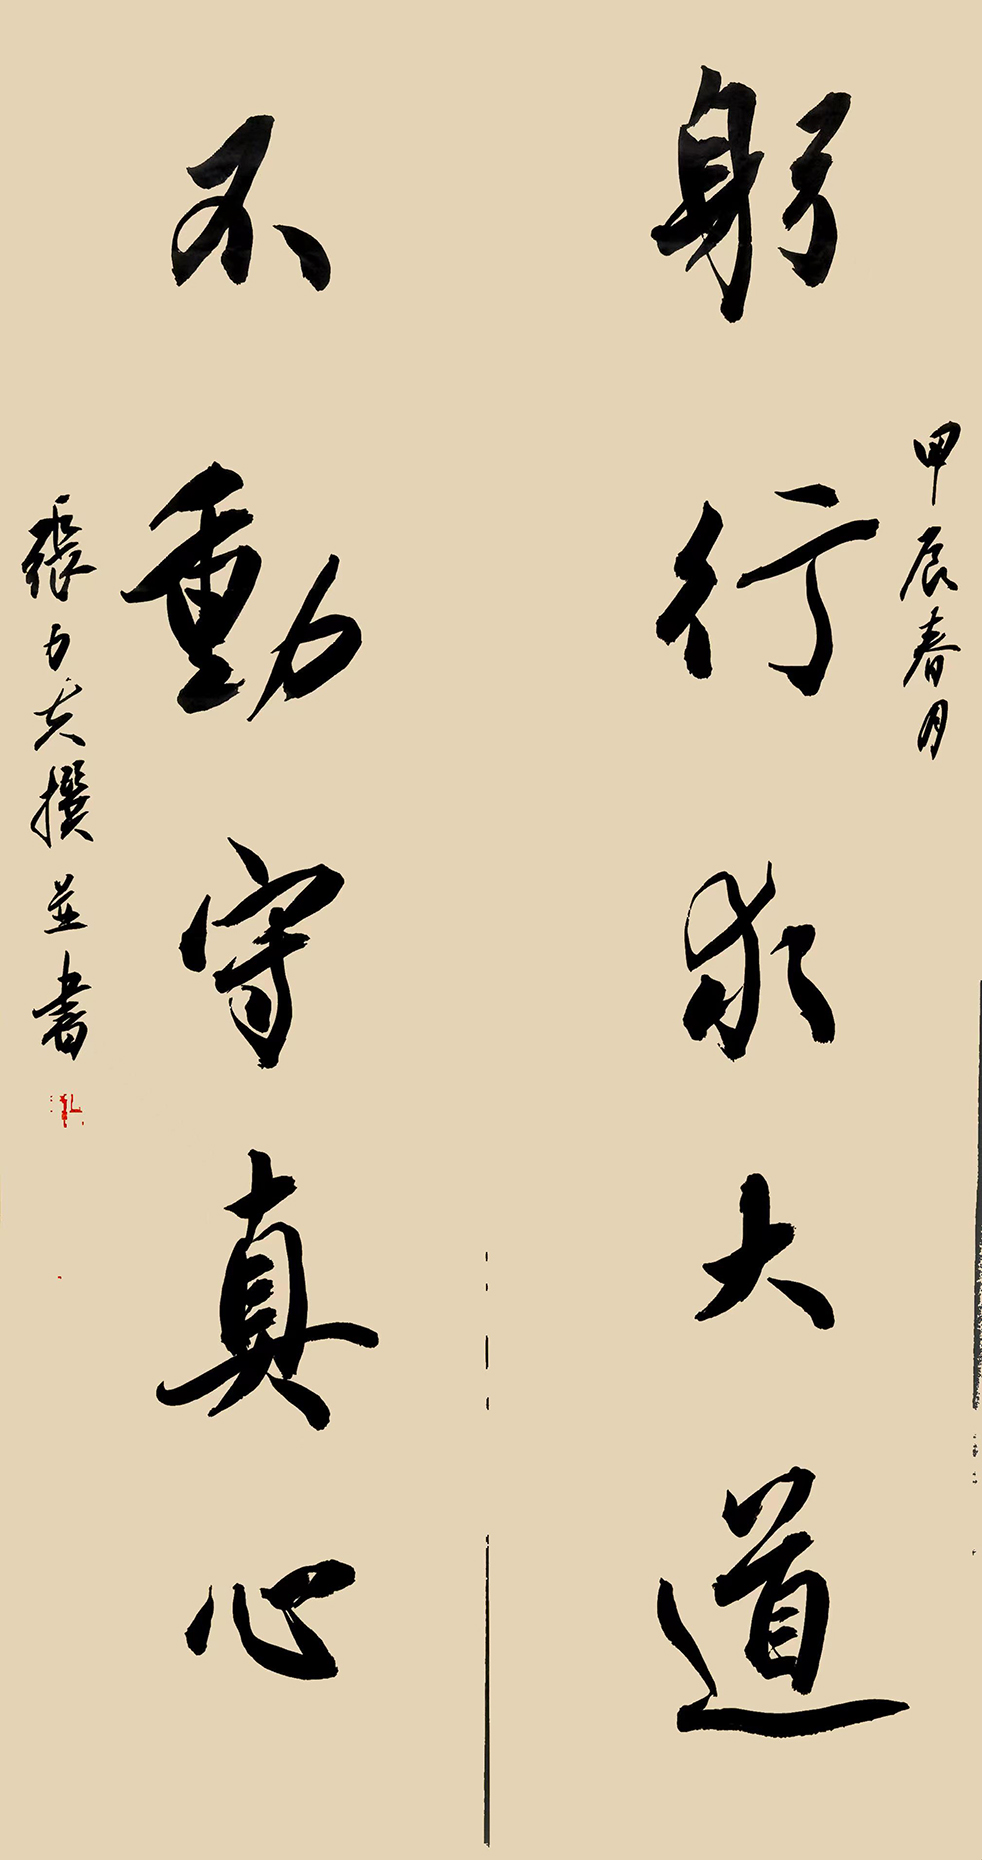 甲辰春月
躬行求大道
不動守真心
張力夫撰並書